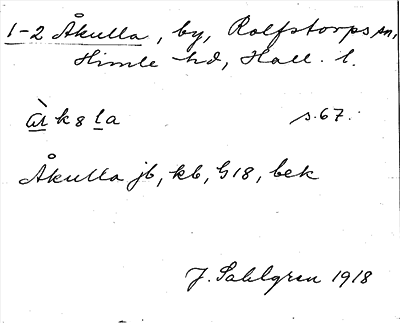 1-2 Åkulla, by, Rolfstorps sn,
Himle hd, Hall. l.
àrk8la s.67.
Åkulla jb, kb, G18, bek
J. Sahlgren 1918